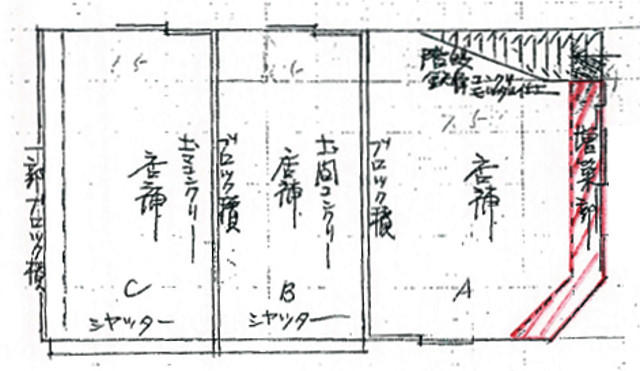 階段
鉄骨コンクリ
モルタル仕上
増築部
店舗
A
ブロック積
土間コンクリー
店舗
B
シヤッター
ブロック積
土間コンクリー
店舗
C
シヤッター
一部ブロック積